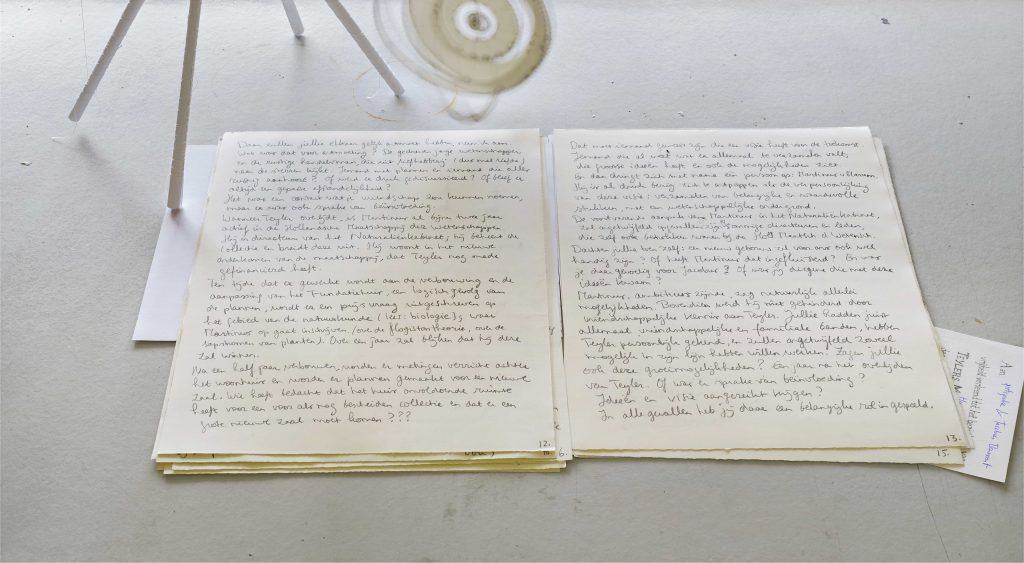 Daar zullen jullie elkaar gelijk ontmoet hebben, neem ik aan.
Hoe was dat voor ontmoeting? De gedreven jonge wetenschapper
en de rustige handelsman, die uit liefhebberij (dus met liefde)
naar de sterren kijkt. Iemand met plannen en iemand die alles
rustig aanhoort? Of werd er druk gediscussieerd? Of bleef er
altijd een gepaste afstandelijkheid?
Het was een contact wat je vriendschap zou kunnen noemen,
maar er was ook sprake van beïnvloeding.
Wanneer Teyler overlijdt, is Martinus al bijna twee jaar
actief in de Hollandsche Maatschappij der Wetenschappen
Hij is directeur van het Naturaliënkabinet; hij beheert de
collectie en breidt deze uit. Hij woont in het nieuwe
onderkomen van de maatschappij, dat Teyler nog mede
gefinancierd heeft.
Ten tijde dat er gewerkt wordt aan de verbouwing en de
aanpassing van het Fundatiehuis, een logisch gevolg van
de plannen, wordt er een prijsvraag uitgeschreven op
het gebied van de natuurkunde (lees: biologie), waar
Martinus op gaat inschrijven (over de flogistontheorie, over de
sapstromen van planten). Over een jaar zal blijken dat hij deze
zal winnen.
Na een half jaar verbouwen, worden er metingen verricht achter
het woonhuis en worden er plannen gemaakt voor een nieuwe
zaal. Wie heeft bedacht dat het huis onvoldoende ruimte
heeft voor een vooralsnog bescheiden collectie en dat er een
grote nieuwe zaal moet komen???
12.
6.
Dat moet iemand geweest zijn die een visie heeft voor de toekomst
Iemand die al weet wat er allemaal te verzamelen valt,
die grootse ideeën heeft en ook de mogelijkheden ziet.
En dan dringt zich met name een persoon op: Martinus v. Marum
Hij is al druk bezig zich te ontpoppen als de verpersoonlijking
van deze visie: verzamelen van belangrijke en waardevolle
stukken met een wetenschappelijke ondergrond.
De voortvarende aanpak van Martinus in het Naturaliënkabinet,
zal ongetwijfeld opgevallen zijn bij sommige directeuren en leden,
die zelf ook betrokken waren bij de Holl Maatsch d Wetensch.
Dachten jullie toen zelf: een nieuw gebouw zal voor ons ook wel
handig zijn? Of heeft Martinus dat ingefluisterd? En was
je daar gevoelig voor Jacobus? Of was jij diegene die met deze
ideeën kwam?
Martinus, ambitieus zijnde, zag natuurlijk allerlei
mogelijkheden. Bovendien werd hij niet gehinderd door
vriendschappelijke verering aan Teyler. Jullie hadden juist
allemaal vriendschappelijke en familiale banden, hebben
Teyler persoonlijk gekend, en zullen ongetwijfeld zoveel
mogelijk in zijn lijn hebben willen werken. Zagen jullie
ook deze groeimogelijkheden? Een jaar na het overlijden
van Teyler. Of was er sprake van beïnvloeding?
Ideeën en visie aangereikt krijgen?
In alle gevallen heb jij daar een belangrijke rol in gespeeld.
13.
15.
TEYLERS